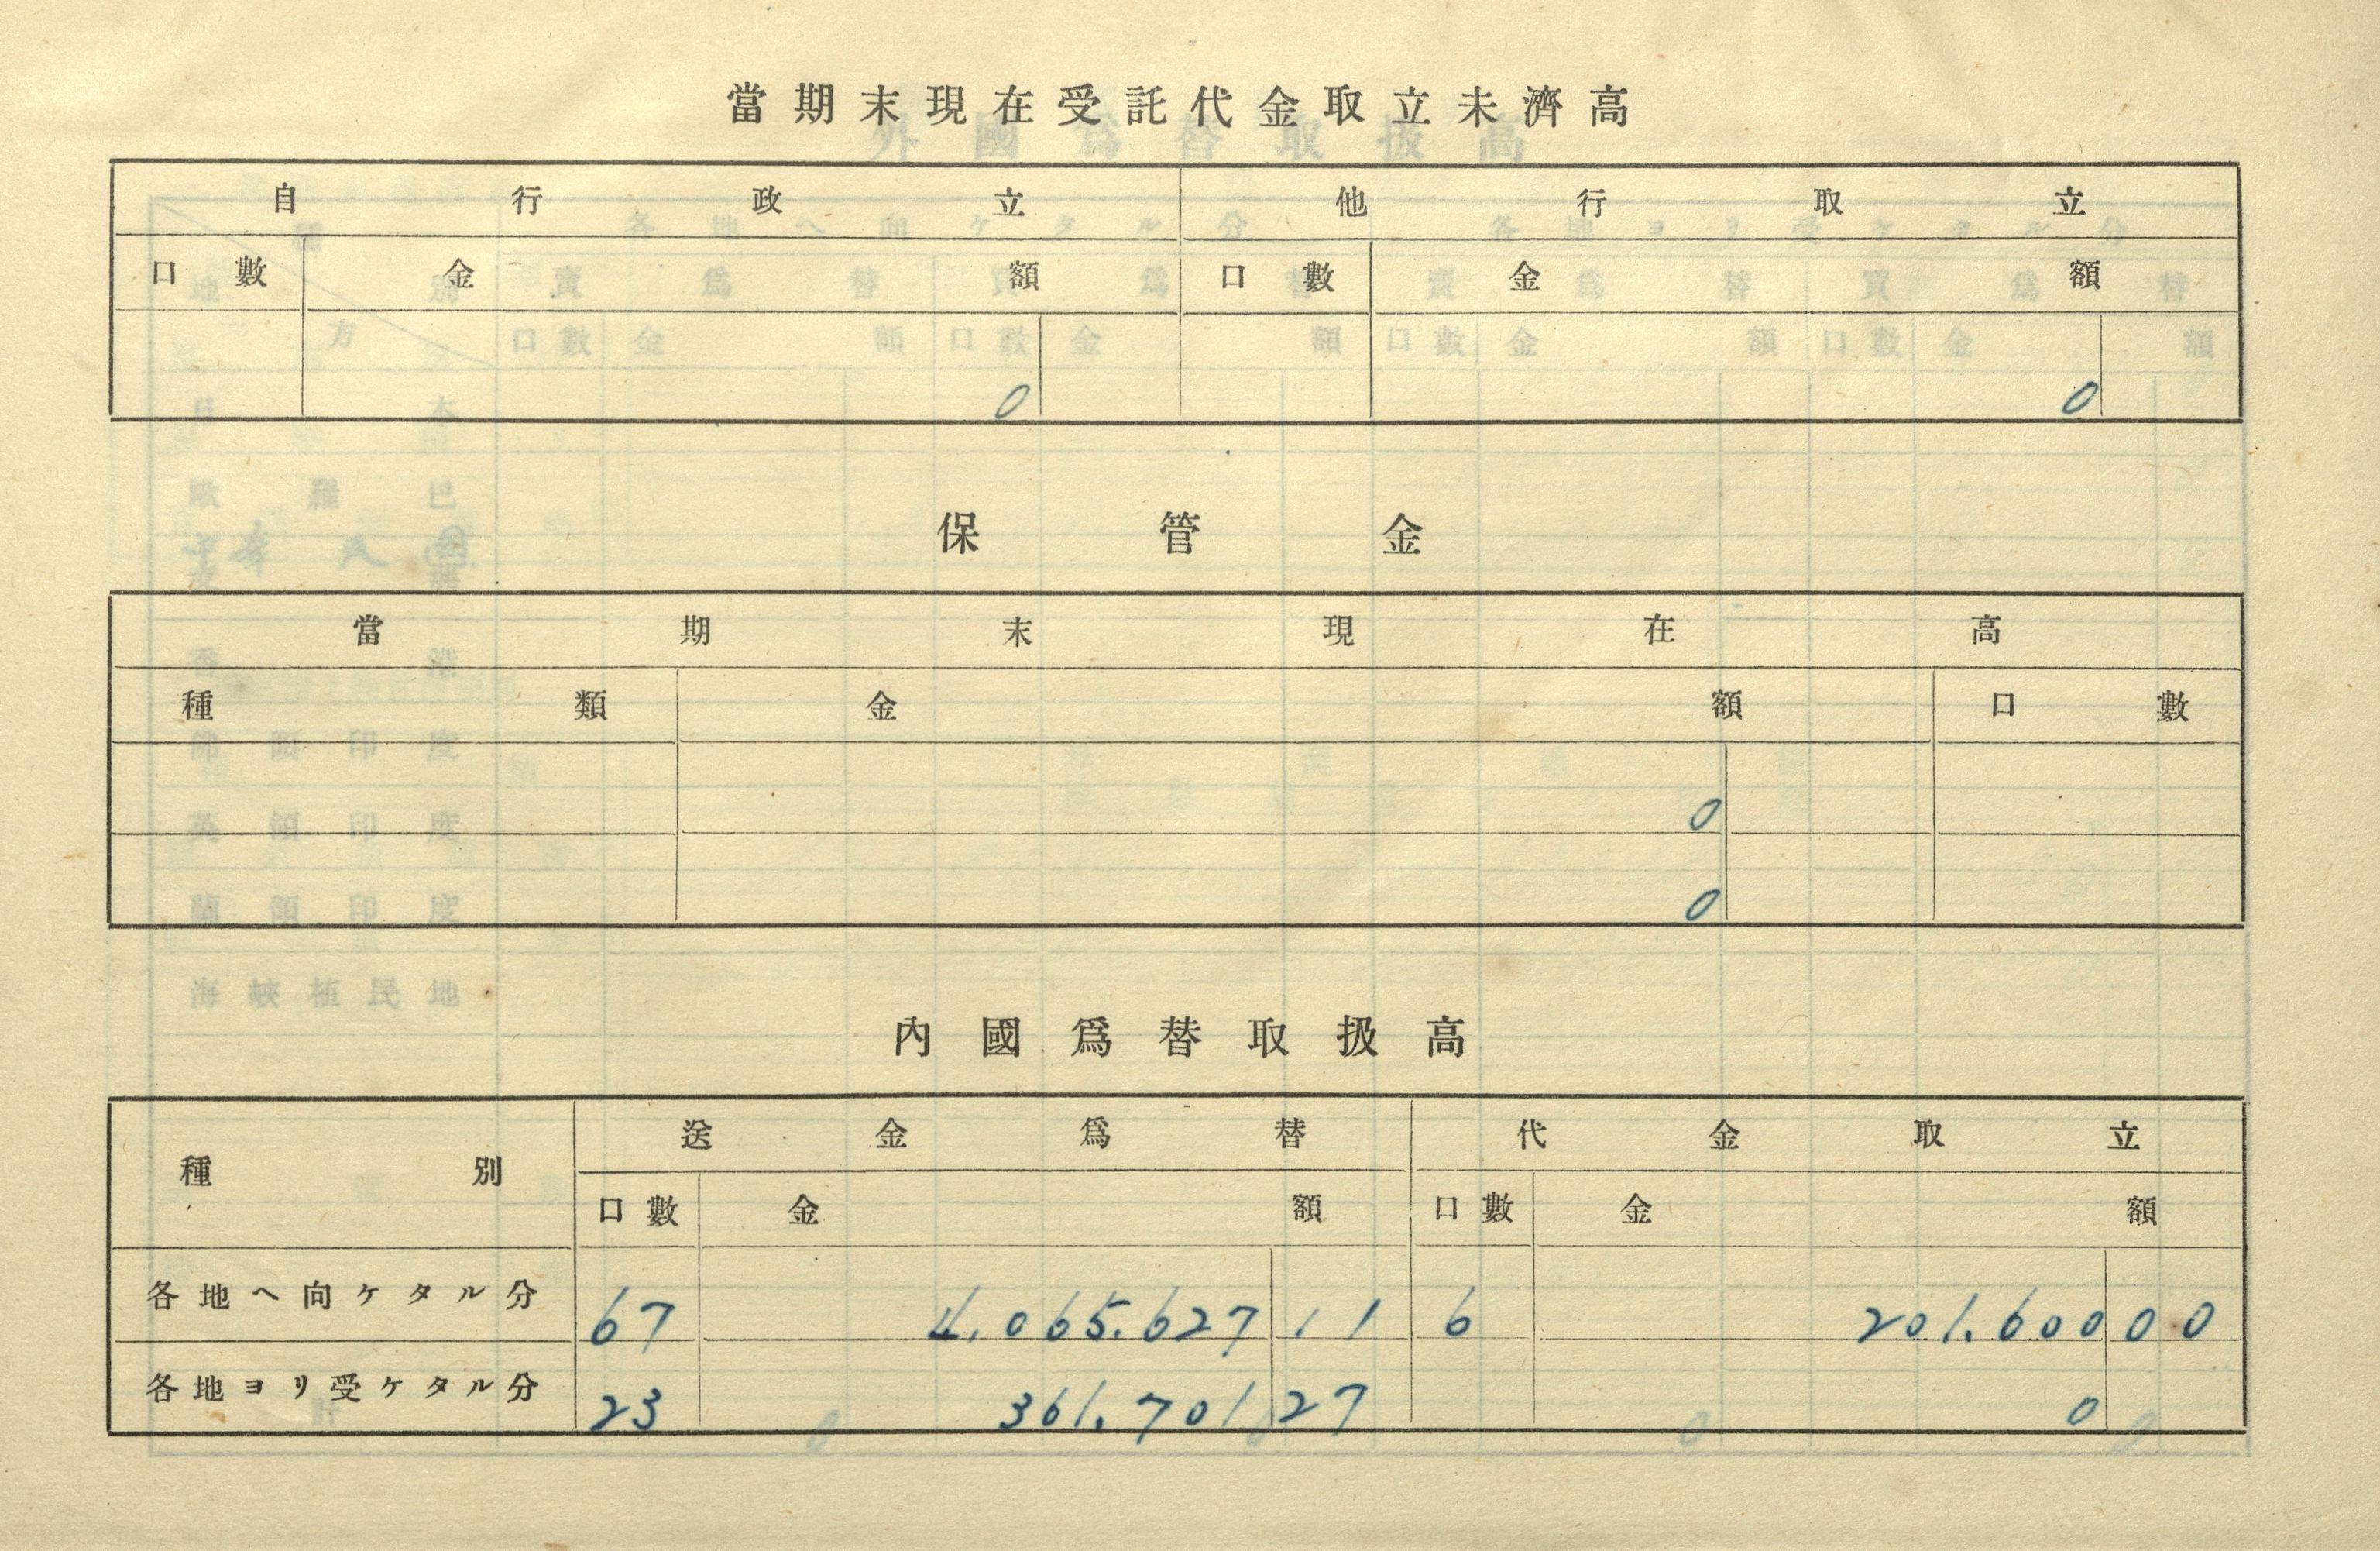 當期末現在受託代金取立未濟高
自行政立 他行取立
口數 金額 口數 金額
0 0
保管金
當期末現在高
種類 金額 口數
0
0
內國爲替取扱高
種別 送金爲替 代金取立
口數 金額 口數 金額
各地ヘ向ケタル分 67 4,065,627 11 6 201,600 00
各地ヨリ受ケタル分 23 361,701 27 0